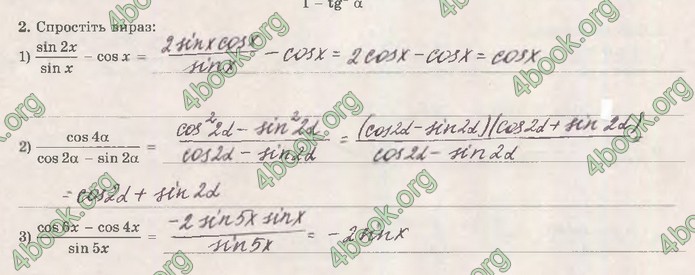 1 − tg² α
2. Спростіть вираз:
1) sin 2x / sin x − cos x = 2 sin x cos x / sin x − cos x = 2 cos x − cos x = cos x
2) cos 4α / (cos 2α − sin 2α) = (cos² 2α − sin² 2α) / (cos 2α − sin 2α) = (cos 2α − sin 2α)(cos 2α + sin 2α) / (cos 2α − sin 2α)
= cos 2α + sin 2α
3) (cos 6x − cos 4x) / sin 5x = −2 sin 5x sin x / sin 5x = −2 sin x
4book.org